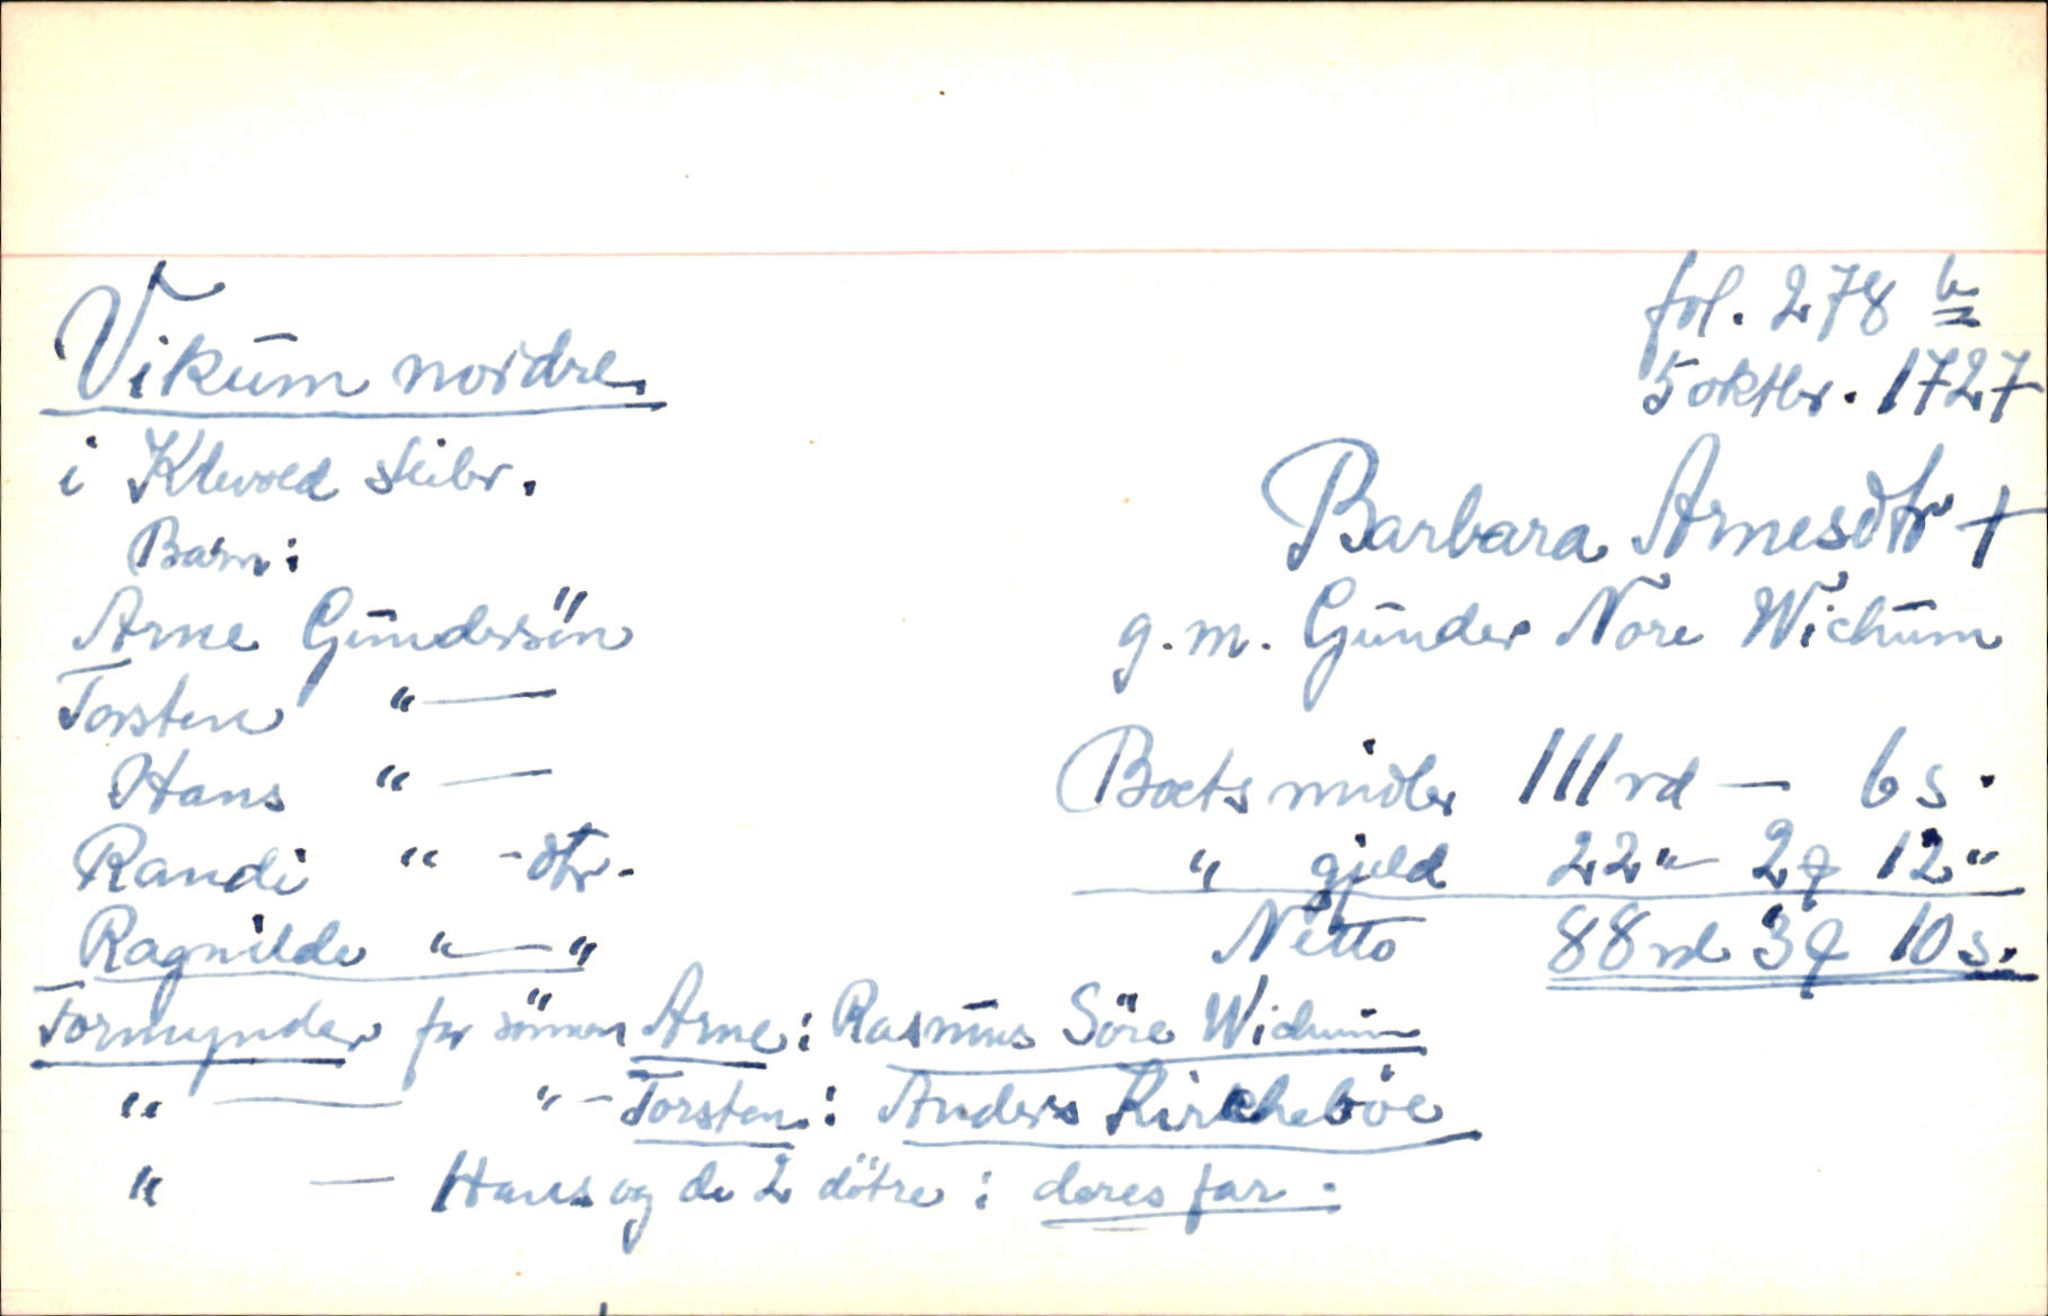 fol. 278 b
Vikum nordre
5 oktbr. 1727
i Klevold skibr.
Barbara Arnesdtr †
Barn:
Arne Gundersön
g. m. Gunder Nore Wichum
Torsten " —
Hans " —
Boets midler 111 rd — 6 s.
Randi " - dtr.
" gjeld 22 " 2 q 12 "
Ragnilde " — "
Netto 88 rd 3 q 10 s.
Formynder for sönnen Arne: Rasmus Söre Wichum
" — " - Torsten: Anders Kircheböe
" — Hans og de 2 dötre: deres far.